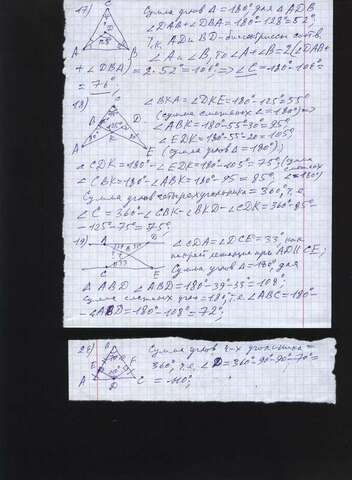 17) Сумма углов Δ = 180°, для Δ ADB
∠DAB + ∠DBA = 180° - 128° = 52°
т.к. AD и BD - биссектрисы соотв.
∠A и ∠B, то ∠A + ∠B = 2(∠DAB +
+ ∠DBA) = 2 · 52° = 104° => ∠C = 180° - 104° =
= 76°
18) ∠BKA = ∠DKE = 180° - 125° = 55°
(сумма смежных ∠ = 180°) =>
∠ABK = 180° - 55° - 30° = 95°
∠EDK = 180° - 55° - 20° = 105°
(сумма углов Δ = 180°);
∠CDK = 180° - ∠EDK = 180° - 105° = 75° (сумма смежных
∠CBK = 180° - ∠ABK = 180° - 95 = 85° ∠ = 180°)
Сумма углов четырехугольника = 360°, т.е.
∠C = 360° - ∠CBK - ∠BKD - ∠CDK = 360° - 85° -
- 125° - 75° = 75°;
19) ∠CDA = ∠DCE = 33° как
при AD || CE;
Сумма углов Δ = 180°, для
Δ ABD ∠ABD = 180° - 39° - 33° = 108°;
Сумма смежных углов = 180°, т.е. ∠ABC = 180° -
- ∠ABD = 180° - 108° = 72°;
26) Сумма углов 4-х угольника =
360°, т.е. ∠D = 360° - 90° - 90° - 70° =
= 110°;